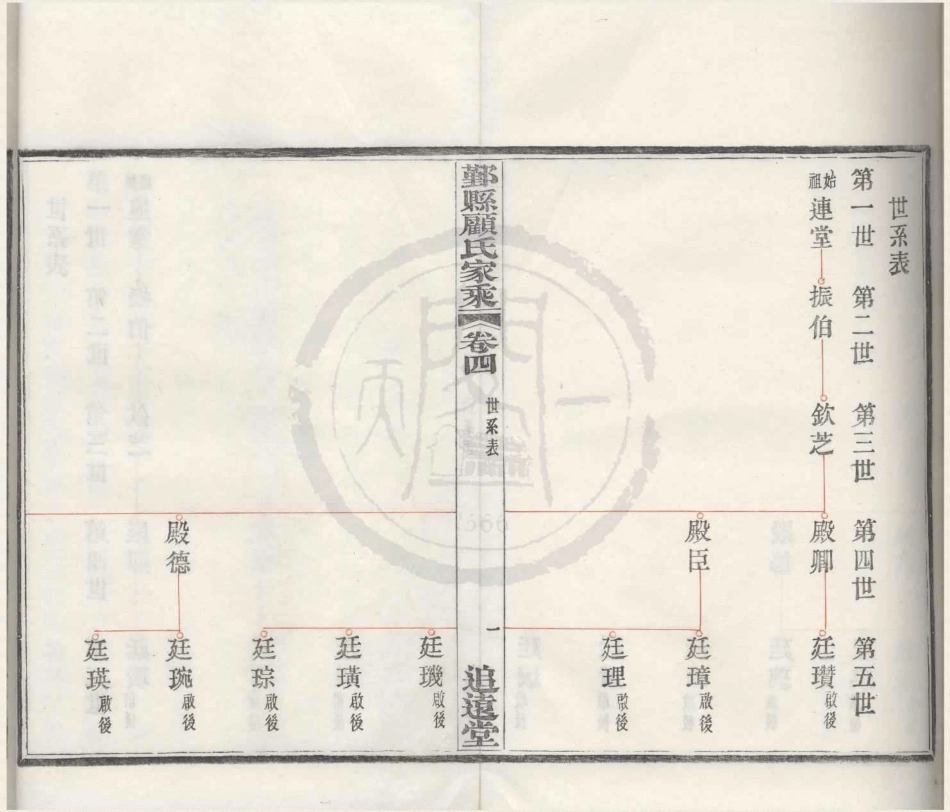 世系表
第一世 第二世 第三世 第四世 第五世
始祖連堂 振伯 欽芝 殿卿 廷瓚啟後
殿臣 廷璋啟後
廷理啟後
鄞縣顧氏家乘 卷四 世系表 一 追遠堂
廷璣啟後
廷璜啟後
廷琮啟後
殿德 廷琬啟後
廷瑛啟後